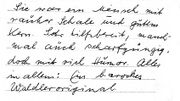 Sie war ein Mensch mit
rauher Schale und gutem
Kern. Sehr hilfsbereit, manch-
mal auch scharfzüngig,
doch mit viel Humor. Alles
in allem: Ein barockes
Waldleroriginal